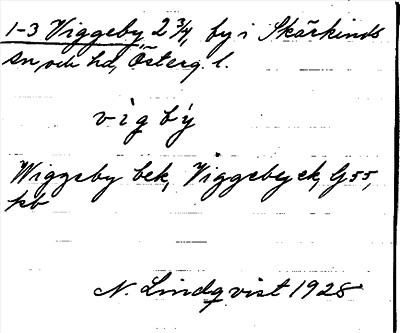 1-3 Viggeby 2 3/4, by i Skärkinds
sn och hd, Österg. l.
vìgbý
Wiggeby bek, Viggeby ek, G 55,
kb
N. Lindqvist 1928